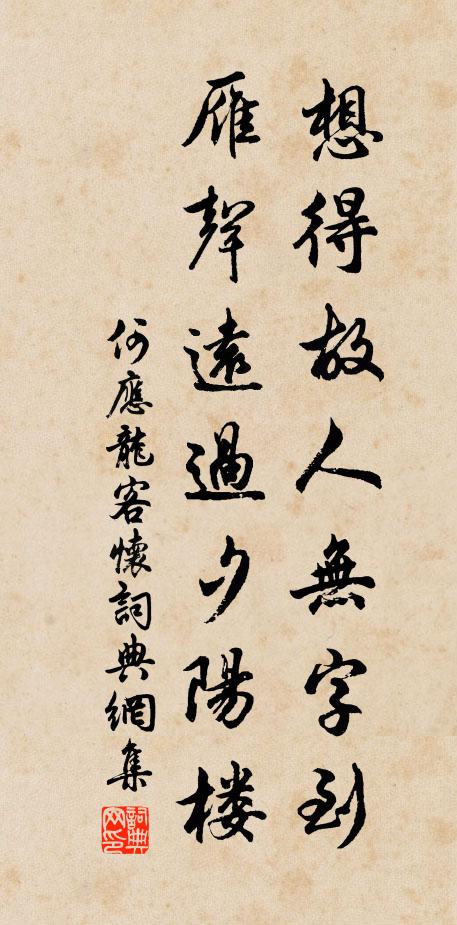 想得故人無字到
雁聲遠過夕陽樓
何應龍客懷詞典網集
詞典網印